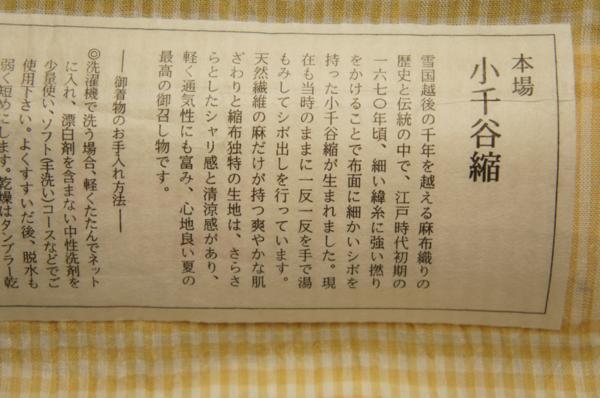 本場
小千谷縮
雪国越後の千年を越える麻布織りの
歴史と伝統の中で、江戸時代初期の
一六七〇年頃、細い緯糸に強い撚り
をかけることで布面に細かいシボを
持った小千谷縮が生まれました。現
在も当時のままに一反一反を手で湯
もみしてシボ出しを行っています。
天然繊維の麻だけが持つ爽やかな肌
ざわりと縮布独特の生地は、さらさ
らとしたシャリ感と清涼感があり、
軽く通気性にも富み、心地良い夏の
最高の御召し物です。
── 御着物のお手入れ方法 ──
◎洗濯機で洗う場合、軽くたたんでネット
に入れ、漂白剤を含まない中性洗剤を
少量使い、ソフト(手洗い)コースなどでご
使用下さい。よくすすいだ後、脱水も
弱く短めにします。乾燥はタンブラー乾